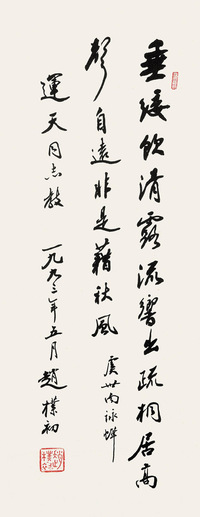 垂緌飲清露流響出疏桐居高
聲自遠非是藉秋風 虞世南詠蟬
運天同志教 一九九三年五月 趙樸初